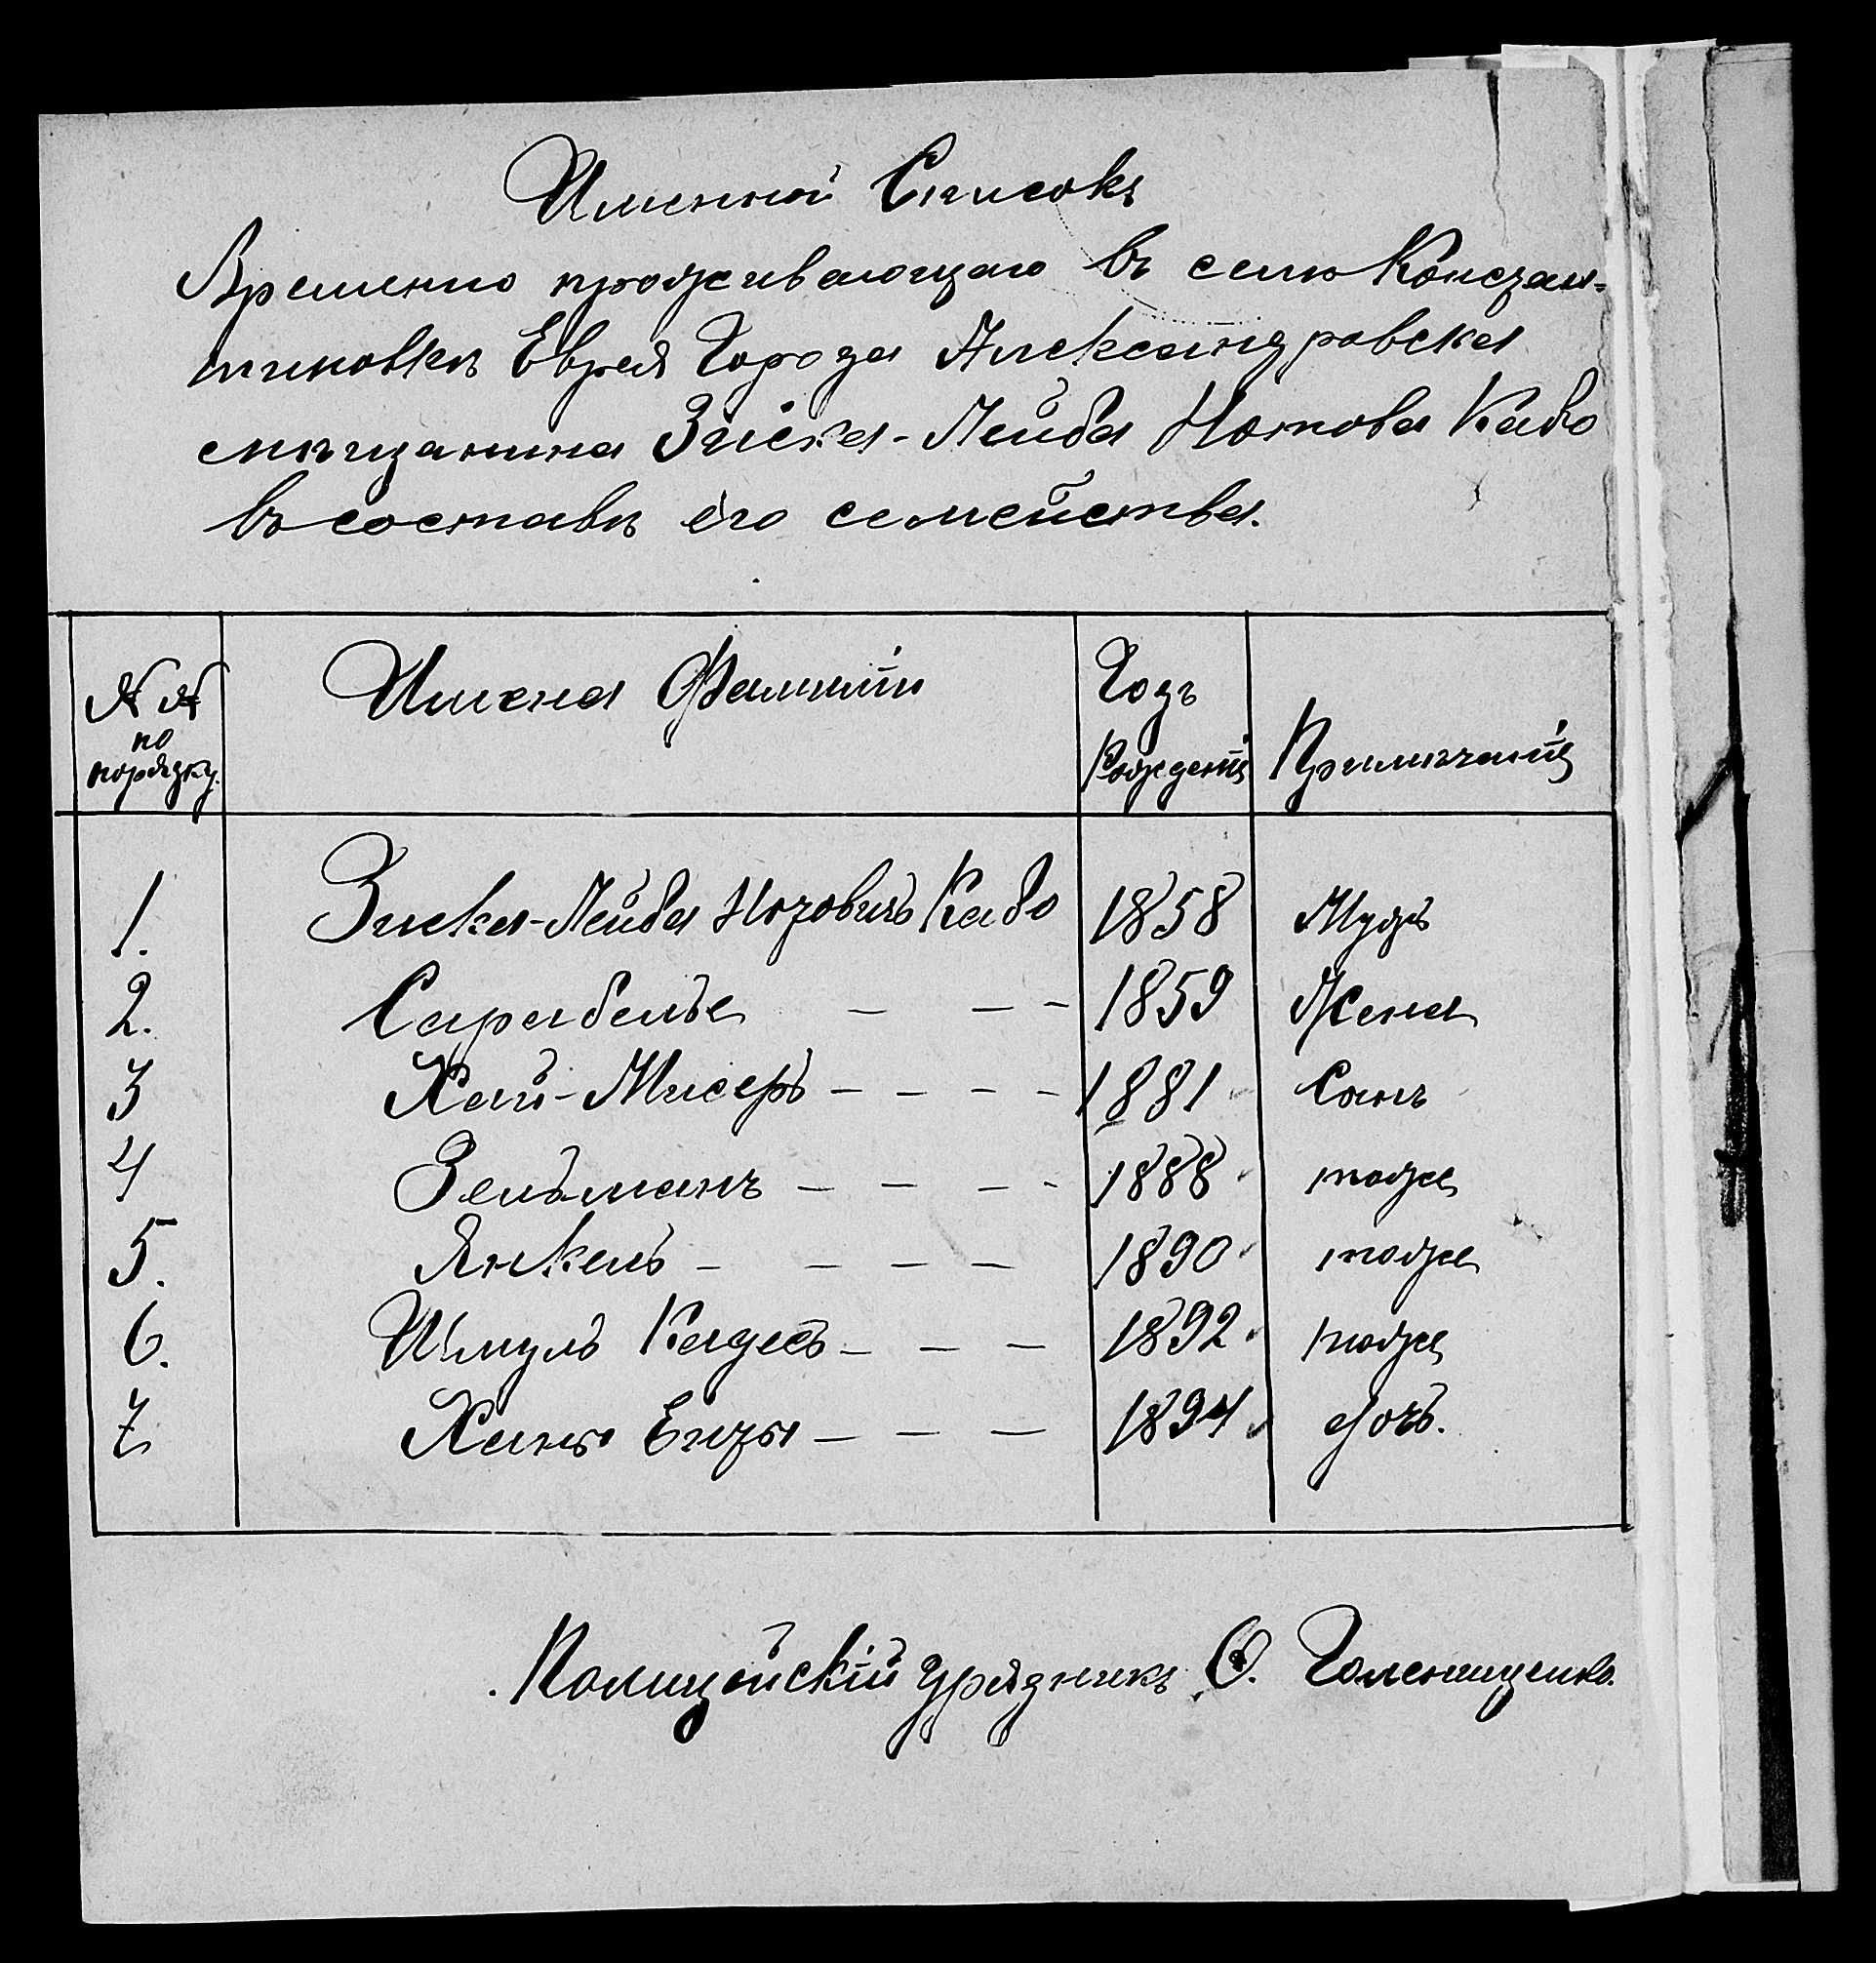 Именной Списокъ
Временно проживающаго въ селѣ Констан-
тиновкѣ Еврея Города Александровска
мѣщанина Зиска-Лейба Нотова Кабо
въ составѣ его семейства.
№ № по порядку. Имена Фамилiи Годъ Рожденiя Примѣчанiя
1. Зиска-Лейба Нотовичъ Кабо 1858 Мужъ
2. Сарабелъе — — — 1859 Жена
3 Хай-Мисеръ — — — — 1881 Сынъ
4 Зелъманъ — — — — 1888 тоже
5. Янкелъ — — — — 1890 тоже
6. Шмулъ — — — 1892 тоже
7. Ханы — — — 1894 дочъ.
Полицейскiй урядникъ Голенищенко.